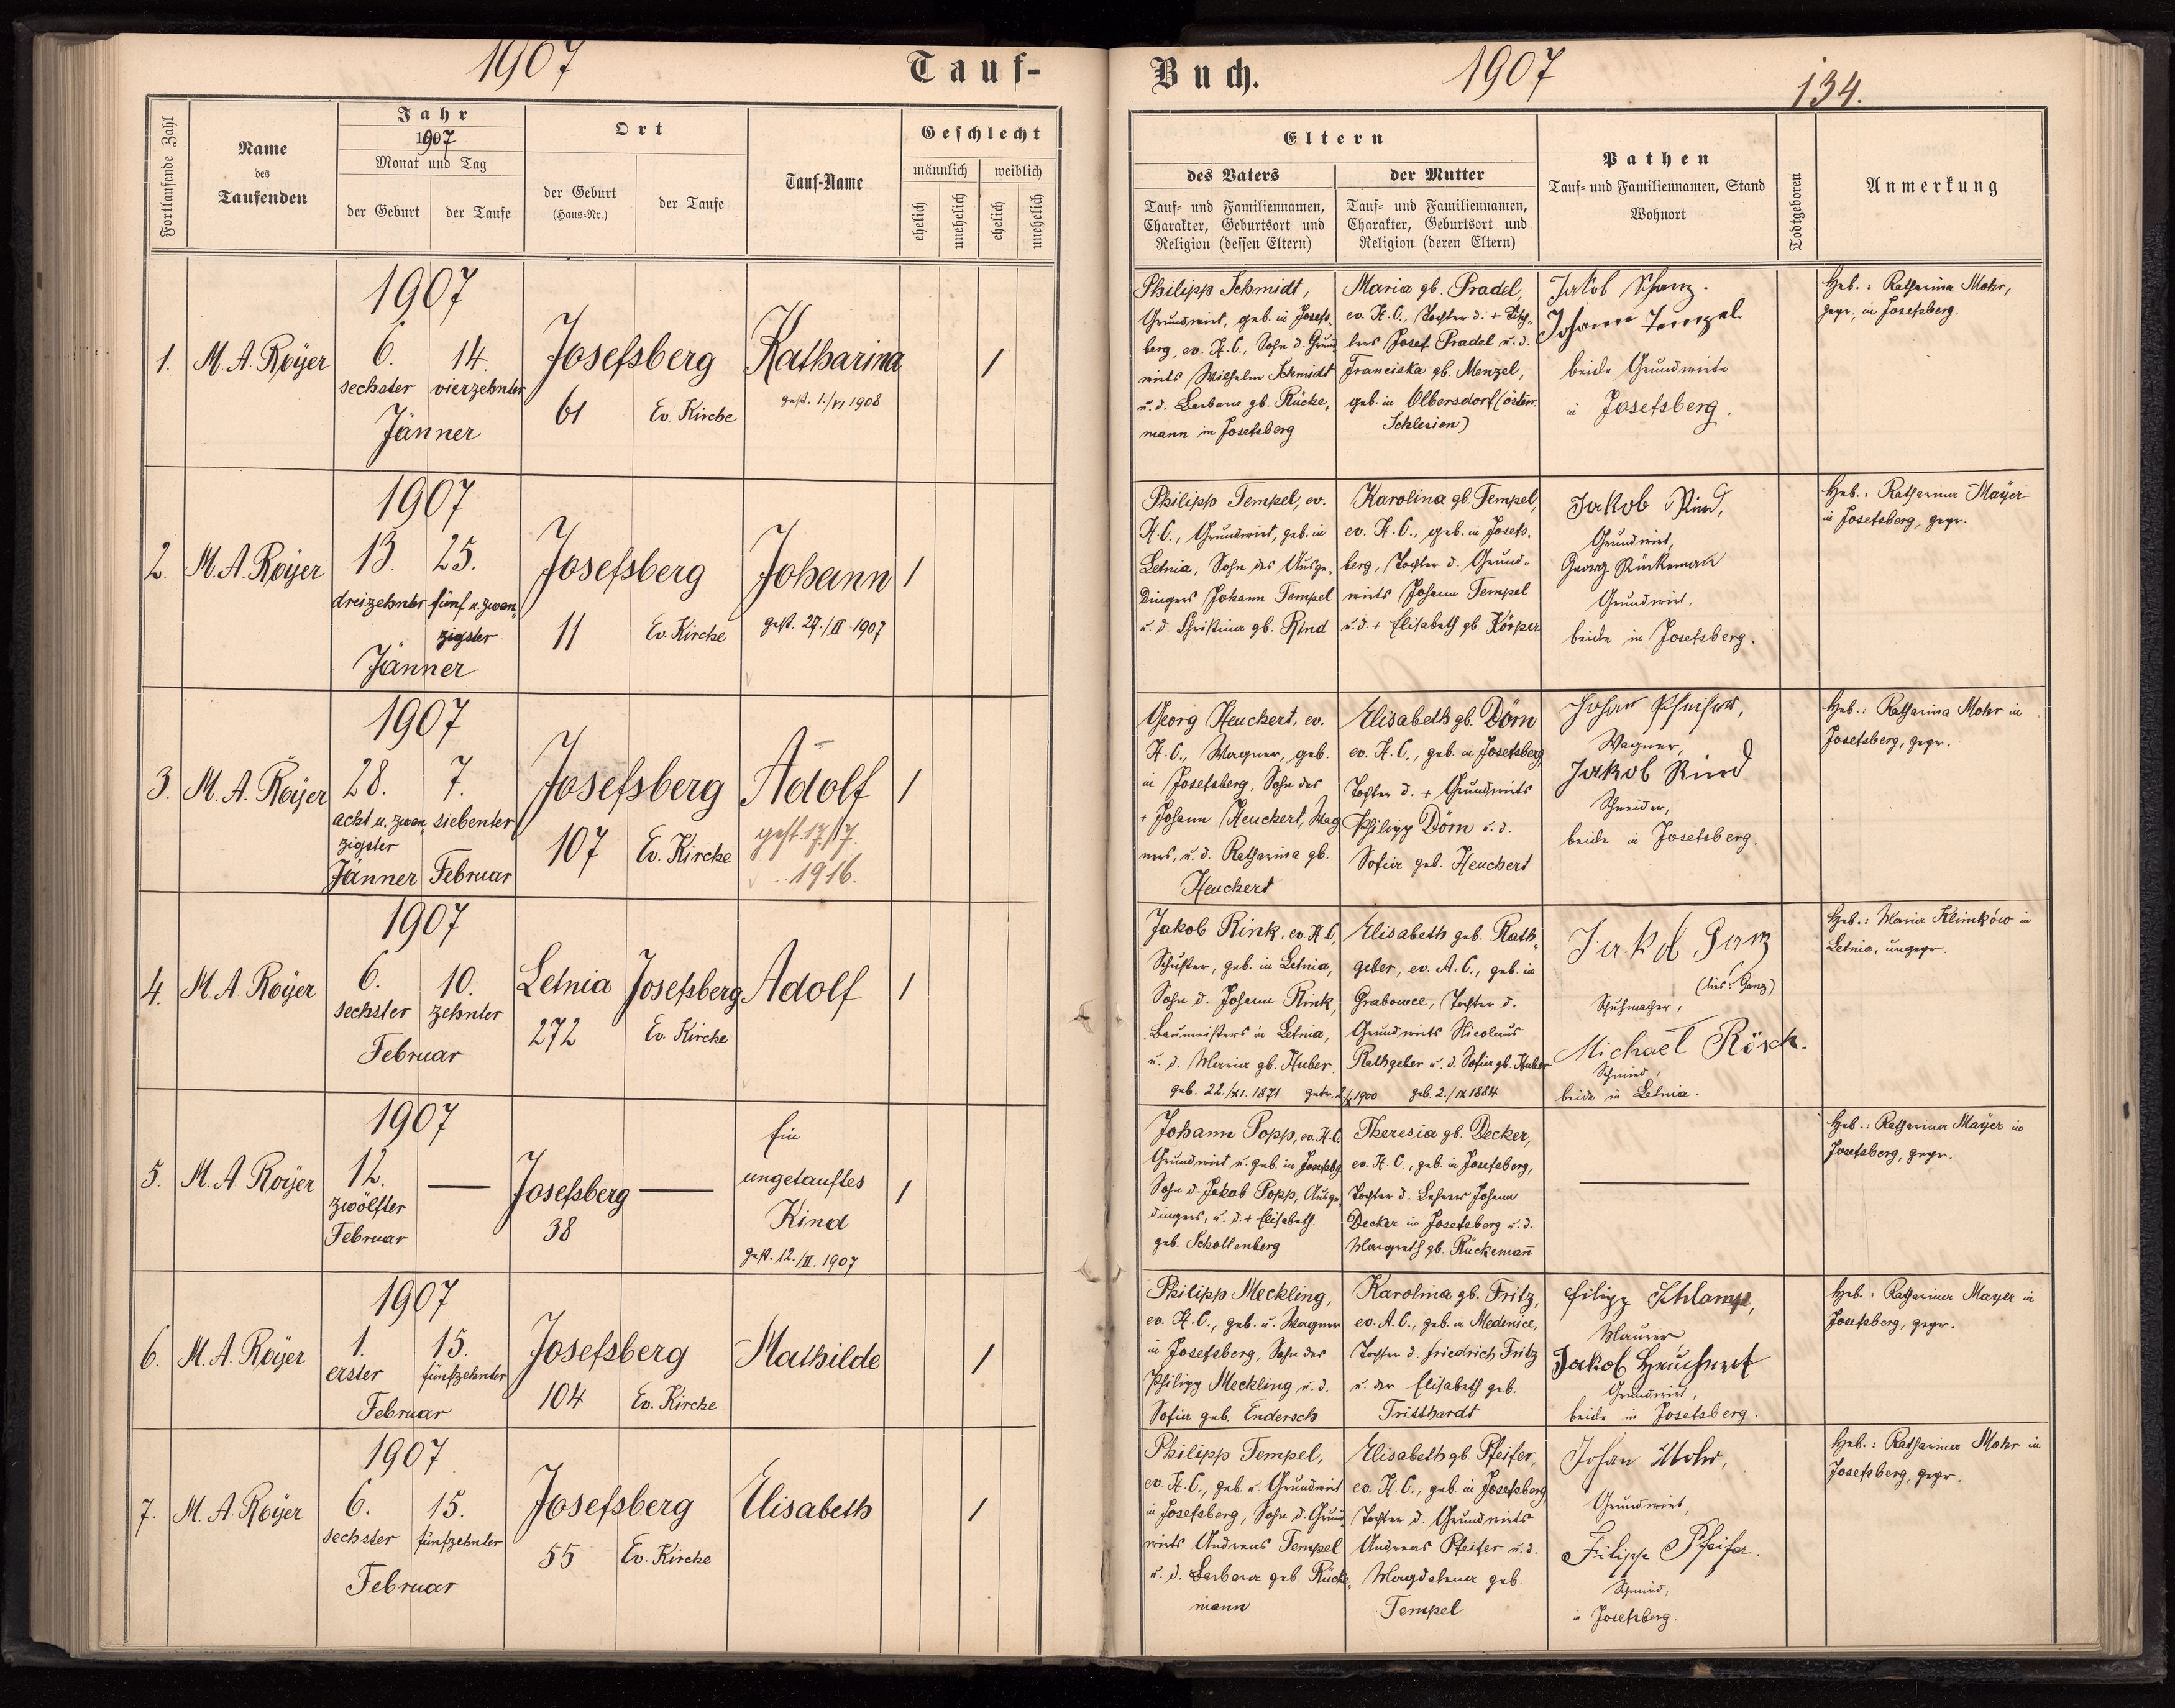 1907
Tauf-
Buch.
1907
134.
Fortlaufende Zahl
Name
des
Taufenden
Jahr
1907
Monat und Tag
der Geburt
der Taufe
Ort
der Geburt
(Haus-Nr.)
der Taufe
Tauf-Name
Geschlecht
männlich
weiblich
ehelich
unehelich
ehelich
unehelich
Eltern
des Vaters
Tauf- und Familiennamen,
Charakter, Geburtsort und
Religion (dessen Eltern)
der Mutter
Tauf- und Familiennamen,
Charakter, Geburtsort und
Religion (deren Eltern)
Pathen
Tauf- und Familiennamen, Stand
Wohnort
Todtgeboren
Anmerkung
1.
M. A. Royer
1907
6.
14.
sechster
vierzehnter
Jänner
Josefsberg
61
Ev. Kirche
Katharina
gest. 1./VI 1908
1
Philipp Schmidt,
Grundwirt, geb. in Josefs-
berg, ev. H. C., Sohn d. Grund-
wirts Wilhelm Schmidt
u. d. Barbara gb. Rücke-
mann in Josefsberg
Maria gb. Pradel,
ev. H. C., Tochter d. + Tisch-
lers Josef Pradel u. d.
Franciska gb. Menzel,
geb. in Olbersdorf (österr.
Schlesien)
Jakob
Johann Tempel
beide Grundwirte
in Josefsberg.
Heb.: Katharina Mohr,
gepr., in Josefsberg.
2.
M. A. Royer
1907
13.
25.
dreizehnter
fünf u. zwan-
zigster
Jänner
Josefsberg
11
Ev. Kirche
Johann
gest. 27./II 1907
1
Philipp Tempel, ev.
H. C., Grundwirt, geb. in
Letnia, Sohn des Ausge-
dingers Johann Tempel
u. d. Christina gb. Rind
Karolina gb. Tempel,
ev. H. C., geb. in Josefs-
berg, Tochter d. Grund-
wirts Johann Tempel
u. d. + Elisabeth gb. Körper
Jakob Rind,
Grundwirt,
Georg Rückemann
Grundwirt,
beide in Josefsberg.
Heb.: Katharina Mayer
in Josefsberg, gepr.
3.
M. A. Royer
1907
28.
7.
acht u. zwan-
zigster
siebenter
Jänner
Februar
Josefsberg
107
Ev. Kirche
Adolf
gest. 17./7.
1916.
1
Georg Heuchert, ev.
H. C., Wagner, geb.
in Josefsberg, Sohn des
+ Johann Heuchert, Wag-
ners, u. d. Katharina gb.
Heuchert
Elisabeth gb. Dörn
ev. H. C., geb. in Josefsberg
Tochter d. + Grundwirts
Philipp Dörn u. d.
Sofia geb. Heuchert
Johan Pfeifer,
Wagner,
Jakob Rind
Schneider,
beide in Josefsberg.
Heb.: Katharina Mohr in
Josefsberg, gepr.
4.
M. A. Royer
1907
6.
10.
sechster
zehnter
Februar
Letnia
272
Josefsberg
Ev. Kirche
Adolf
1
Jakob Rink, ev. H. C.,
Schuster, geb. in Letnia,
Sohn d. Johann Rink,
Baumeisters in Letnia,
u. d. Maria gb. Huber.
geb. 22./XI. 1871 getr. 2./X 1900
Elisabeth geb. Rath-
geber, ev. A. C., geb. in
Grabowce, Tochter d.
Grundwirts Nicolaus
Rathgeber u. d. Sofia gb. Huber
geb. 2./IX 1884
Jakob Ganz
(Ganz)
Schuhmacher,
Michael Rösch.
Schmied,
beide in Letnia.
Heb.: Maria Klimków in
Letnia, ungepr.
5.
M. A. Royer
1907
12.
zwölfter
Februar
Josefsberg
38
Ein
ungetauftes
Kind
gest. 12./II. 1907
1
Johann Popp, ev. H. C.
Grundwirt u. geb. in Josefsbg.
Sohn d. Jakob Popp, Ausge-
dingers, u. d. + Elisabeth
geb. Schollenberg
Theresia gb. Decker,
ev. H. C., geb. in Josefsberg,
Tochter d. Lehrers Johann
Decker in Josefsberg u. d.
Margreth gb. Rückemañ
Heb.: Katharina Mayer in
Josefsberg, gepr.
6.
M. A. Royer
1907
1.
15.
erster
fünfzehnter
Februar
Josefsberg
104
Ev. Kirche
Mathilde
1
Philipp Meckling,
ev. H. C., geb. u. Wagner
in Josefsberg, Sohn des
Philipp Meckling u. d.
Sofia geb. Endersch
Karolina gb. Fritz,
ev. A. C., geb. in Medenice,
Tochter d. Friedrich Fritz
u. der Elisabeth geb.
Tritthardt
Filipp Schlamp,
Maurer
Jakob Heuchert
Grundwirt,
beide in Josefsberg.
Heb.: Katharina Mayer in
Josefsberg, gepr.
7.
M. A. Royer
1907
6.
15.
sechster
fünfzehnter
Februar
Josefsberg
55
Ev. Kirche
Elisabeth
1
Philipp Tempel,
ev. H. C., geb. u. Grundwirt
in Josefsberg, Sohn d. Grund-
wirts Andreas Tempel
u. d. Barbara geb. Rücke-
mann
Elisabeth gb. Pfeifer,
ev. H. C., geb. in Josefsberg,
Tochter d. Grundwirts
Andreas Pfeifer u. d.
Magdalena geb.
Tempel
Johan Mohr,
Grundwirt,
Filipp Pfeifer.
Schmied,
in Josefsberg.
Heb.: Katharina Mohr in
Josefsberg, gepr.